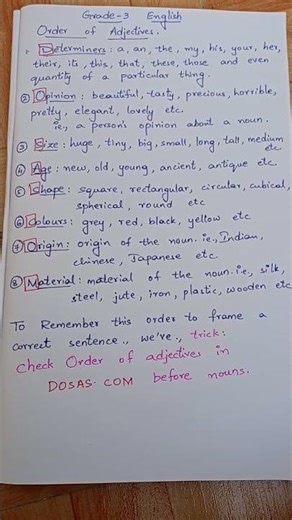 Grade-3 English
Order of Adjectives.
1. Determiners: a, an, the, my, his, your, her,
their, its, this, that, these, those and even
quantity of a particular thing.
② Opinion: beautiful, tasty, precious, horrible,
pretty, elegant, lovely etc.
ie., a person's opinion about a noun.
③ Size: huge, tiny, big, small, long, tall, medium
etc
④ Age: new, old, young, ancient, antique etc
⑤ Shape: square, rectangular, circular, cubical,
spherical, round etc
⑥ Colours: grey, red, black, yellow etc
⑦ Origin: origin of the noun. ie., Indian,
chinese, Japanese etc.
⑧ Material: material of the noun. ie., silk,
steel, jute, iron, plastic, wooden etc
To Remember this order to frame a
correct sentence., we've., trick:
Check Order of adjectives in
DOSAS.COM before nouns.